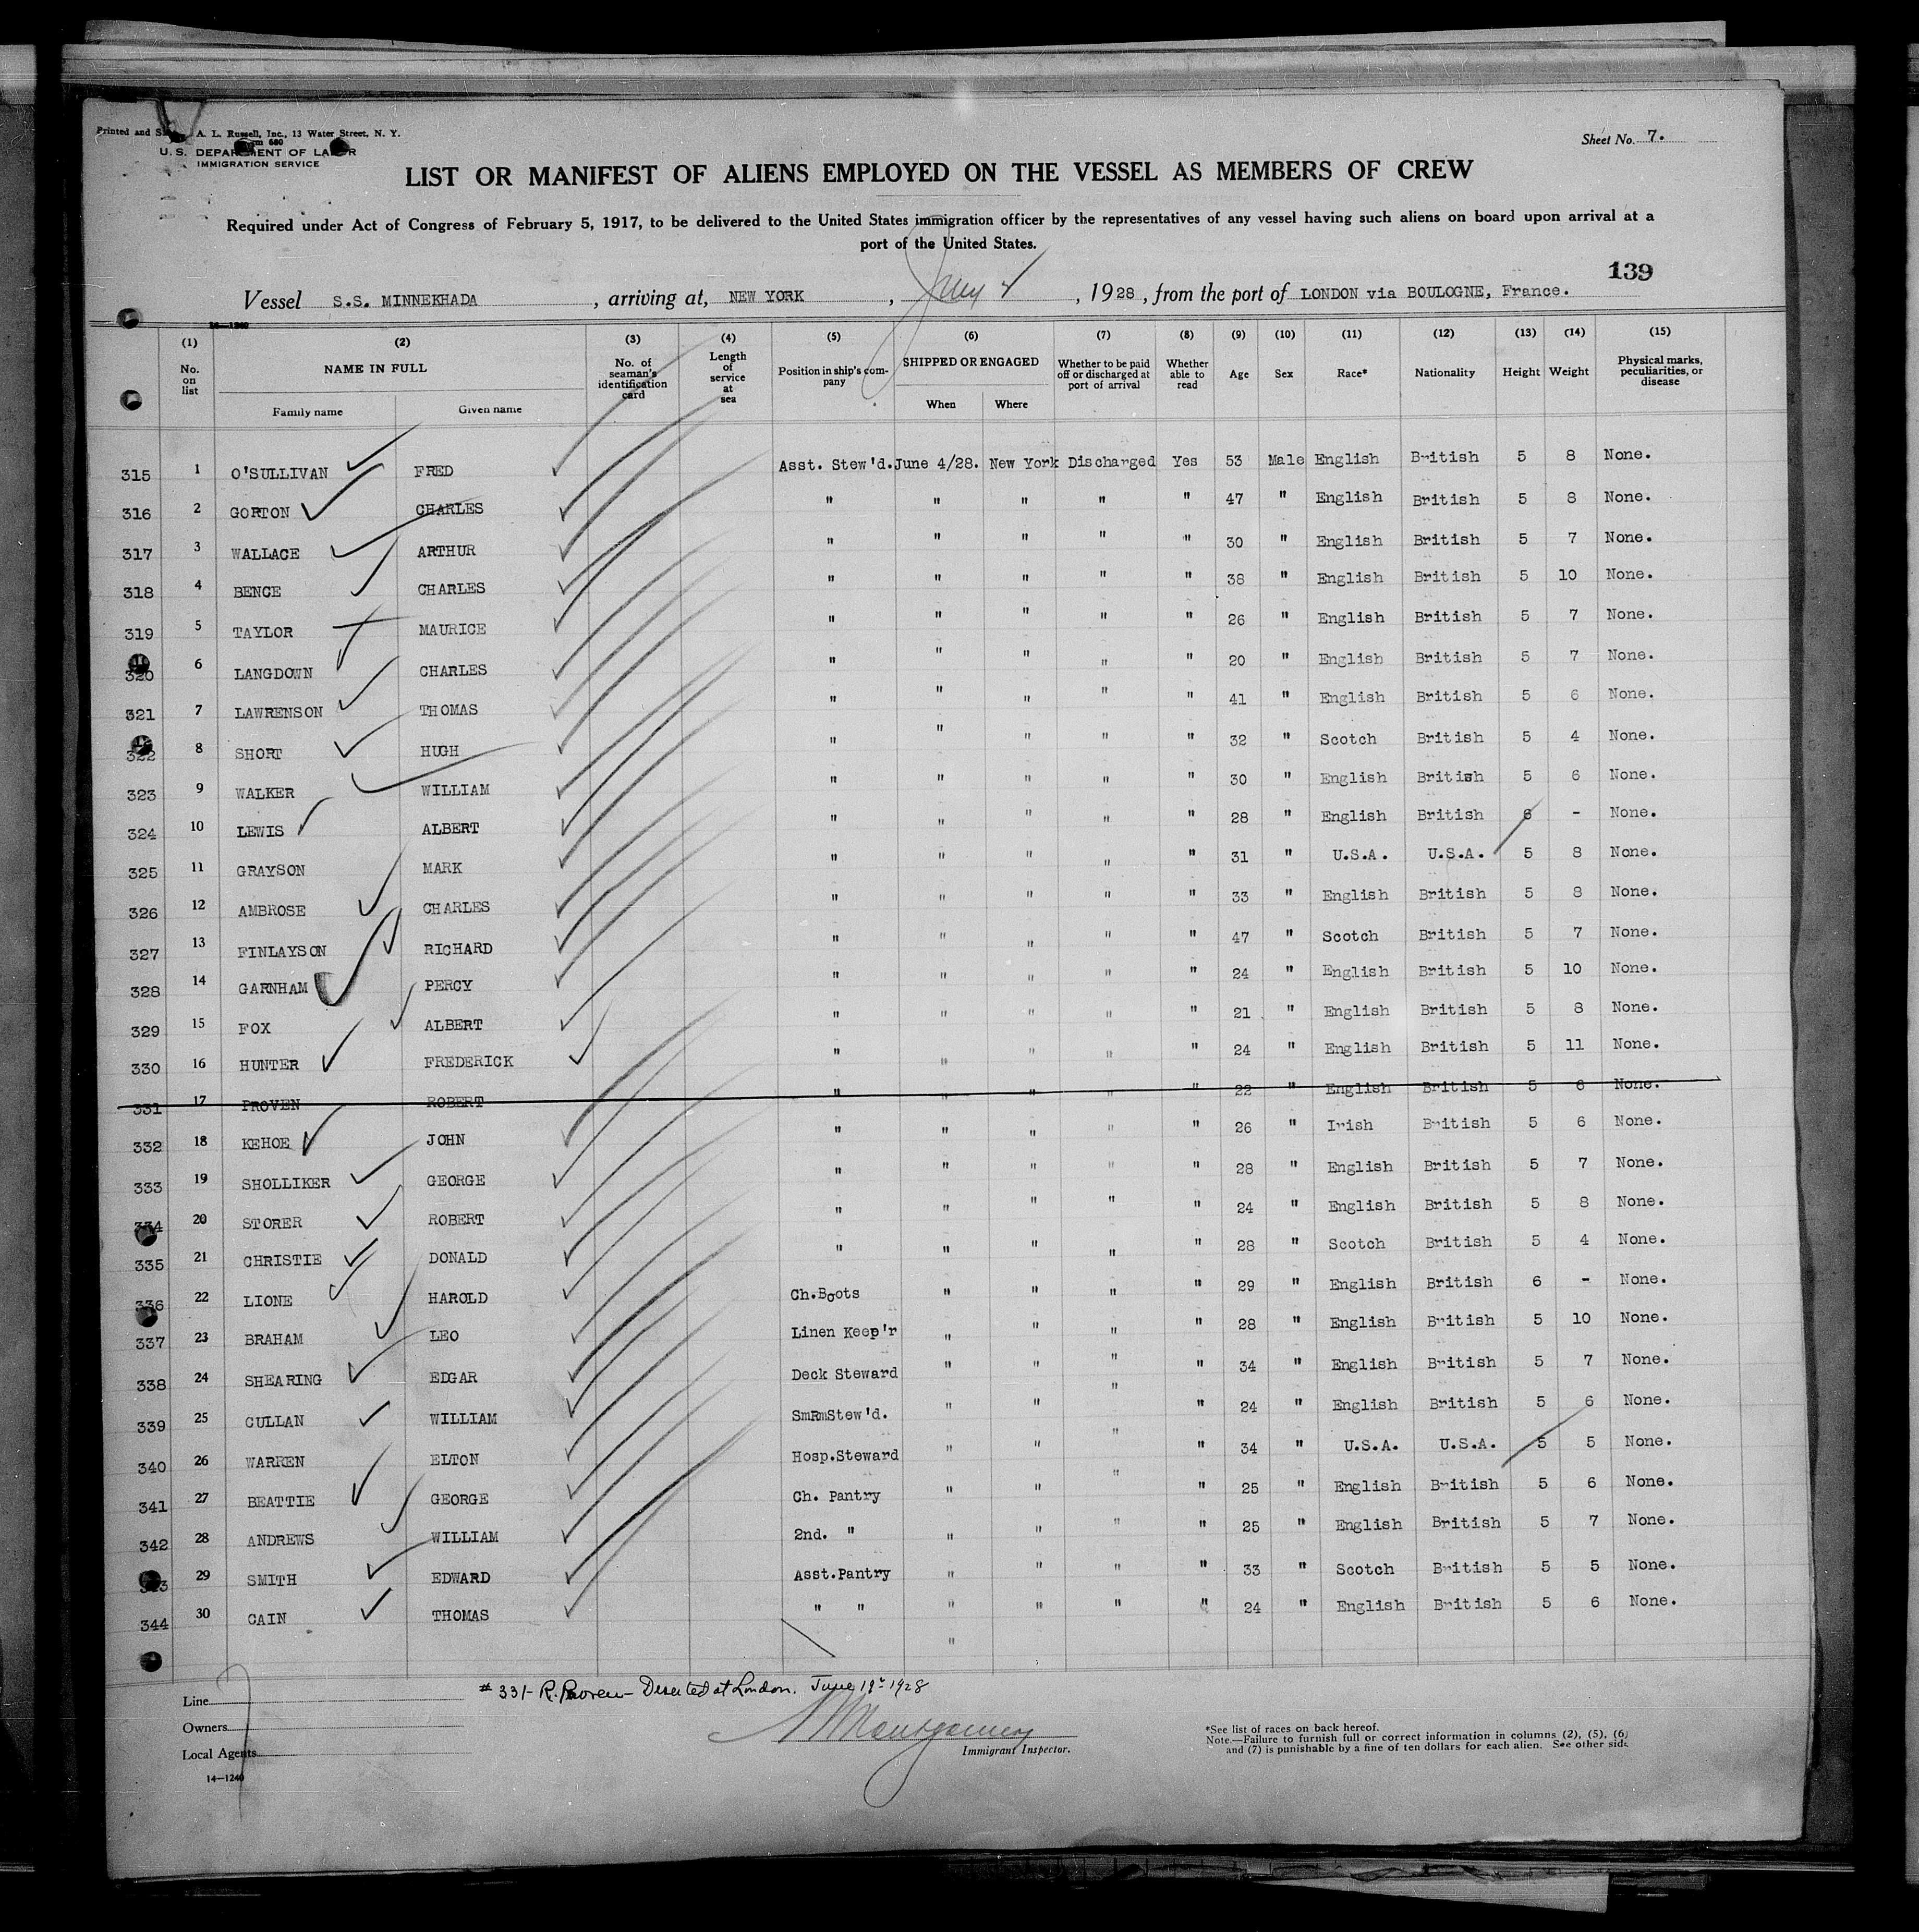 Printed and S A. L. Russell, Inc., 13 Water Street, N. Y.
U. S. DEPARTMENT OF LABOR
IMMIGRATION SERVICE
Sheet No. 7.
LIST OR MANIFEST OF ALIENS EMPLOYED ON THE VESSEL AS MEMBERS OF CREW
Required under Act of Congress of February 5, 1917, to be delivered to the United States immigration officer by the representatives of any vessel having such aliens on board upon arrival at a
port of the United States.
139
Vessel S.S. MINNEKHADA , arriving at, NEW YORK , , 1928, from the port of LONDON via BOULOGNE, France.
14—1240
(1) (2) (3) (4) (5) (6) (7) (8) (9) (10) (11) (12) (13) (14) (15)
No. on list NAME IN FULL Family name Given name No. of seaman's identification card Length of service at sea Position in ship's company SHIPPED OR ENGAGED When Where Whether to be paid off or discharged at port of arrival Whether able to read Age Sex Race* Nationality Height Weight Physical marks, peculiarities, or disease
315 1 O'SULLIVAN FRED Asst. Stew'd. June 4/28. New York Discharged Yes 53 Male English British 5 8 None.
316 2 GORTON CHARLES " " " " " 47 " English British 5 8 None.
317 3 WALLACE ARTHUR " " " " " 30 " English British 5 7 None.
318 4 BENCE CHARLES " " " " " 38 " English British 5 10 None.
319 5 TAYLOR MAURICE " " " " " 26 " English British 5 7 None.
320 6 LANGDOWN CHARLES " " " " " 20 " English British 5 7 None.
321 7 LAWRENSON THOMAS " " " " " 41 " English British 5 6 None.
322 8 SHORT HUGH " " " " " 32 " Scotch British 5 4 None.
323 9 WALKER WILLIAM " " " " " 30 " English British 5 6 None.
324 10 LEWIS ALBERT " " " " " 28 " English British 6 - None.
325 11 GRAYSON MARK " " " " " 31 " U.S.A. U.S.A. 5 8 None.
326 12 AMBROSE CHARLES " " " " " 33 " English British 5 8 None.
327 13 FINLAYSON RICHARD " " " " " 47 " Scotch British 5 7 None.
328 14 GARNHAM PERCY " " " " " 24 " English British 5 10 None.
329 15 FOX ALBERT " " " " " 21 " English British 5 8 None.
330 16 HUNTER FREDERICK " " " " " 24 " English British 5 11 None.
331 17 PROVEN ROBERT " " " " " 22 " English British 5 6 None.
332 18 KEHOE JOHN " " " " " 26 " Irish British 5 6 None.
333 19 SHOLLIKER GEORGE " " " " " 28 " English British 5 7 None.
334 20 STORER ROBERT " " " " " 24 " English British 5 8 None.
335 21 CHRISTIE DONALD " " " " " 28 " Scotch British 5 4 None.
336 22 LIONE HAROLD Ch.Boots " " " " 29 " English British 6 - None.
337 23 BRAHAM LEO Linen Keep'r " " " " 28 " English British 5 10 None.
338 24 SHEARING EDGAR Deck Steward " " " " 34 " English British 5 7 None.
339 25 CULLAN WILLIAM SmRmStew'd. " " " " 24 " English British 5 6 None.
340 26 WARREN ELTON Hosp.Steward " " " " 34 " U.S.A. U.S.A. 5 5 None.
341 27 BEATTIE GEORGE Ch. Pantry " " " " 25 " English British 5 6 None.
342 28 ANDREWS WILLIAM 2nd. " " " " " 25 " English British 5 7 None.
343 29 SMITH EDWARD Asst.Pantry " " " " 33 " Scotch British 5 5 None.
344 30 CAIN THOMAS " " " " " " 24 " English British 5 6 None.
"
# 331- R. Proven - Deserted at London. June 19th 1928
Line
Owners
Local Agents
14—1240
Montgomery
Immigrant Inspector.
*See list of races on back hereof.
Note.—Failure to furnish full or correct information in columns (2), (5), (6)
and (7) is punishable by a fine of ten dollars for each alien. See other side